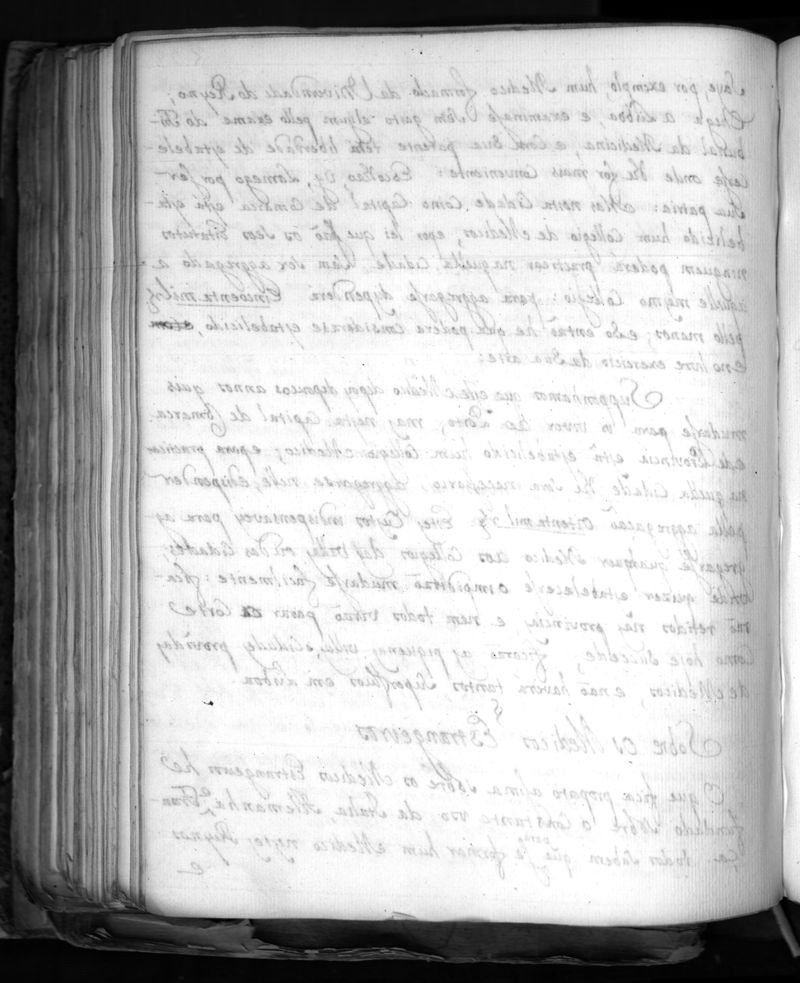 Seja, por exemplo, hum Medico formado da Universidade do Reyno;
Chega a Lisboa, e examinase sem gasto algum pello exame do Tri-
bunal da Medicina, e com Sua patente tem liberdade de estabele-
cerse onde lhe for mais conveniente: Escolheo, v.g, Lamego por ser
Sua patria: Mas nesta Cidade como Capital de Comarca está esta-
belecido hum Collegio de Medicos, e por lei que são os Seos Estatutos
ninguem poderá practicar naquella Cidade Sem Ser aggregado a
aquelle mesmo Collegio: para aggregarse dependerá Cincoenta mil rs
pello menos; e So entaõ he que poderá considerarse estabelecido,
e no livre exercicio da Sua arte:
Supponhamos que este Medico depois de poucos annos quis
mudarse para ir viver ao Porto, mas nesta Capital de Comarca
e de Provincia está estabelecido hum Collegio Medico; e para practicar
na quella Cidade lhe Sera necessario aggregarse nelle, e dispender
pella aggregação Oitenta mil rs. Estes Custos indispensaveis para ag-
gregarse qualquer Medico aos Collegios das Villas, ou das Cidades,
onde quizer estabelecerse o impedirão mudarse facilmente: fica-
rão retidos nas provincias, e nem todos virão parar a Corte
Como hoje Sucede; ficarão as pequenas Villas, e Cidades providas
de Medicos, e não haverá tantos Superfluos em Lisboa.
§
Sobre os Medicos Estrangeiros
O que fica proposto asima Sobre os Medicos Estrangeiros he
fundado Sobre o Constante uso da Italia, Alemanha, e Fran-
ça. todos Sabem que para Se formar hum Medico nestes Reynos
e